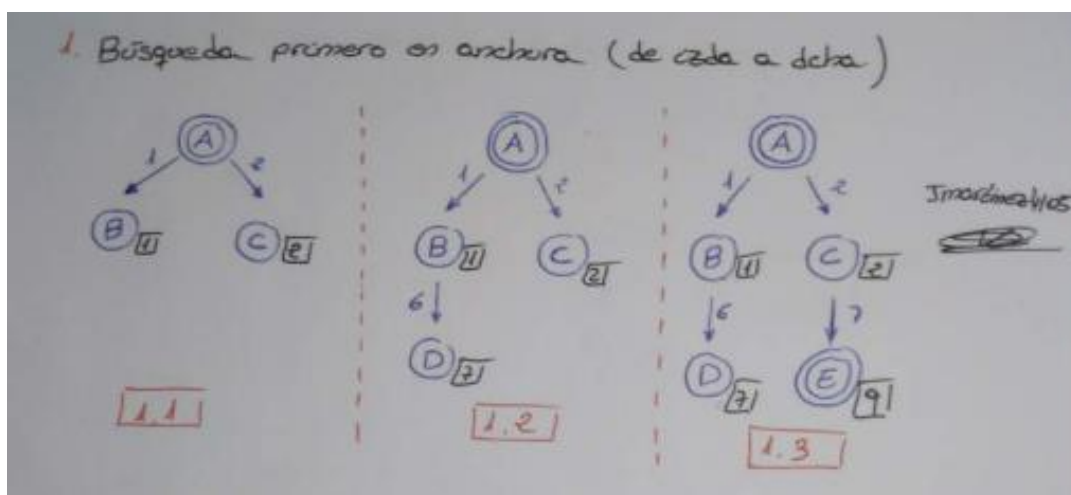 1. Búsqueda primero en anchura (de izda a dcha)
A
1 2
B 1 C 2
1.1
A
1 2
B 1 C 2
6
D 7
1.2
A
1 2
B 1 C 2
6 7
D 7 E 9
1.3